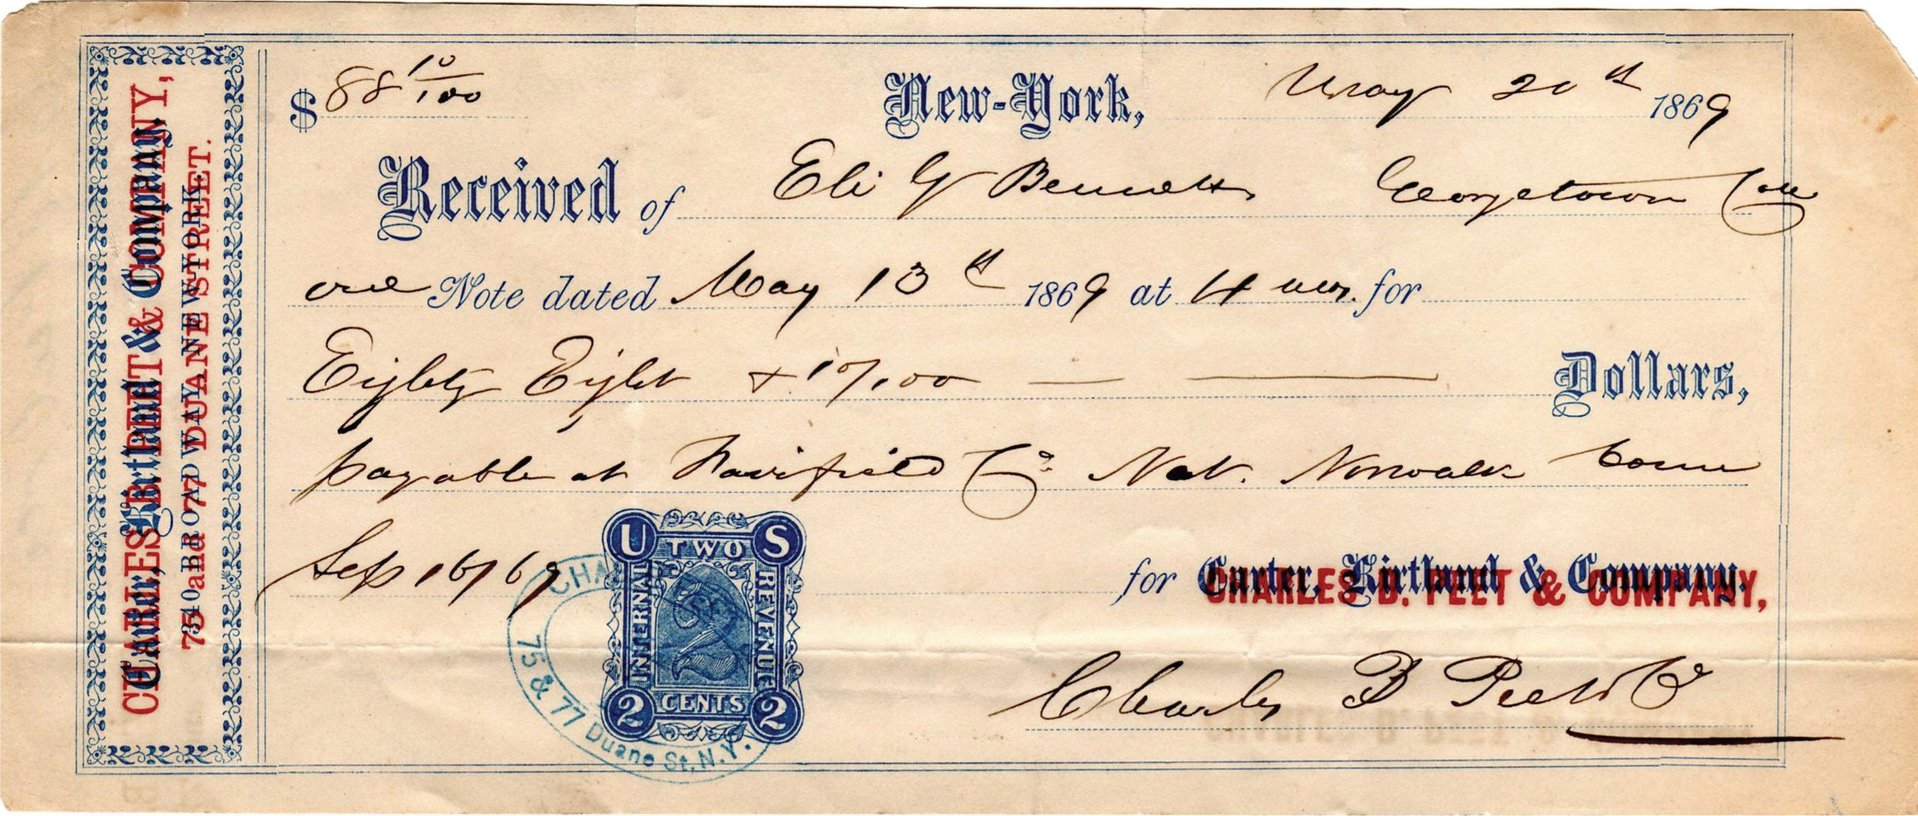 $ 88 10/100 New-York, May 20th 1869
Received of Eli G Bennett Georgetown
one Note dated May 13th 1869 at 4 mos. for
Eighty Eight & 10/100 — — Dollars,
payable at Fairfield Co. Nat. Norwalk Conn
Sep 16/69
for Carter, Kirtland & Company.
CHARLES B. PEET & COMPANY,
Charles B Peet & Co
Carter, Kirtland & Company,
340 BROADWAY NEW YORK.
CHARLES B. PEET & COMPANY,
75 and 77 DUANE STREET.
U S
TWO
INTERNAL REVENUE
CENTS
2 2
CHA
75 & 77 Duane St, N.Y.